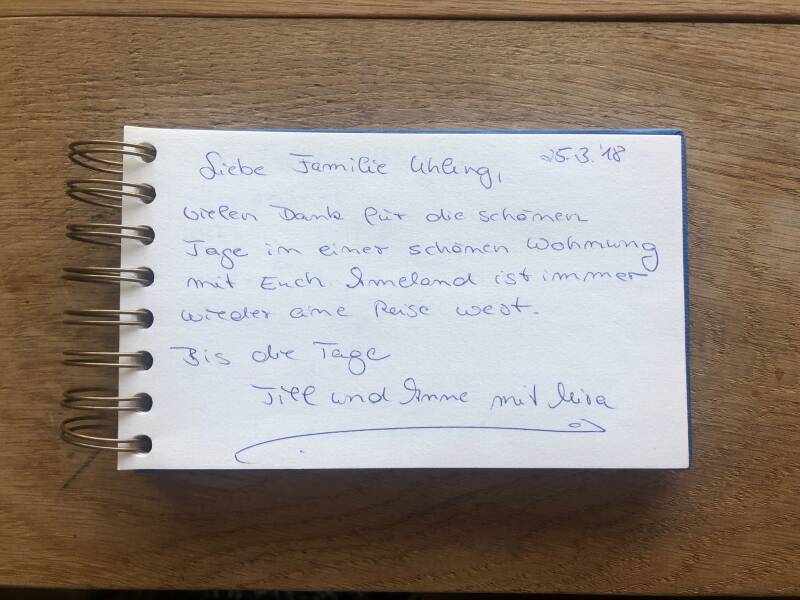 Liebe Familie Uhling, 25.3.'18
vielen Dank für die schönen
Tage in einer schönen Wohnung
mit Euch Ameland ist immer
wieder eine Reise wert.
Bis die Tage
Till und Anne mit